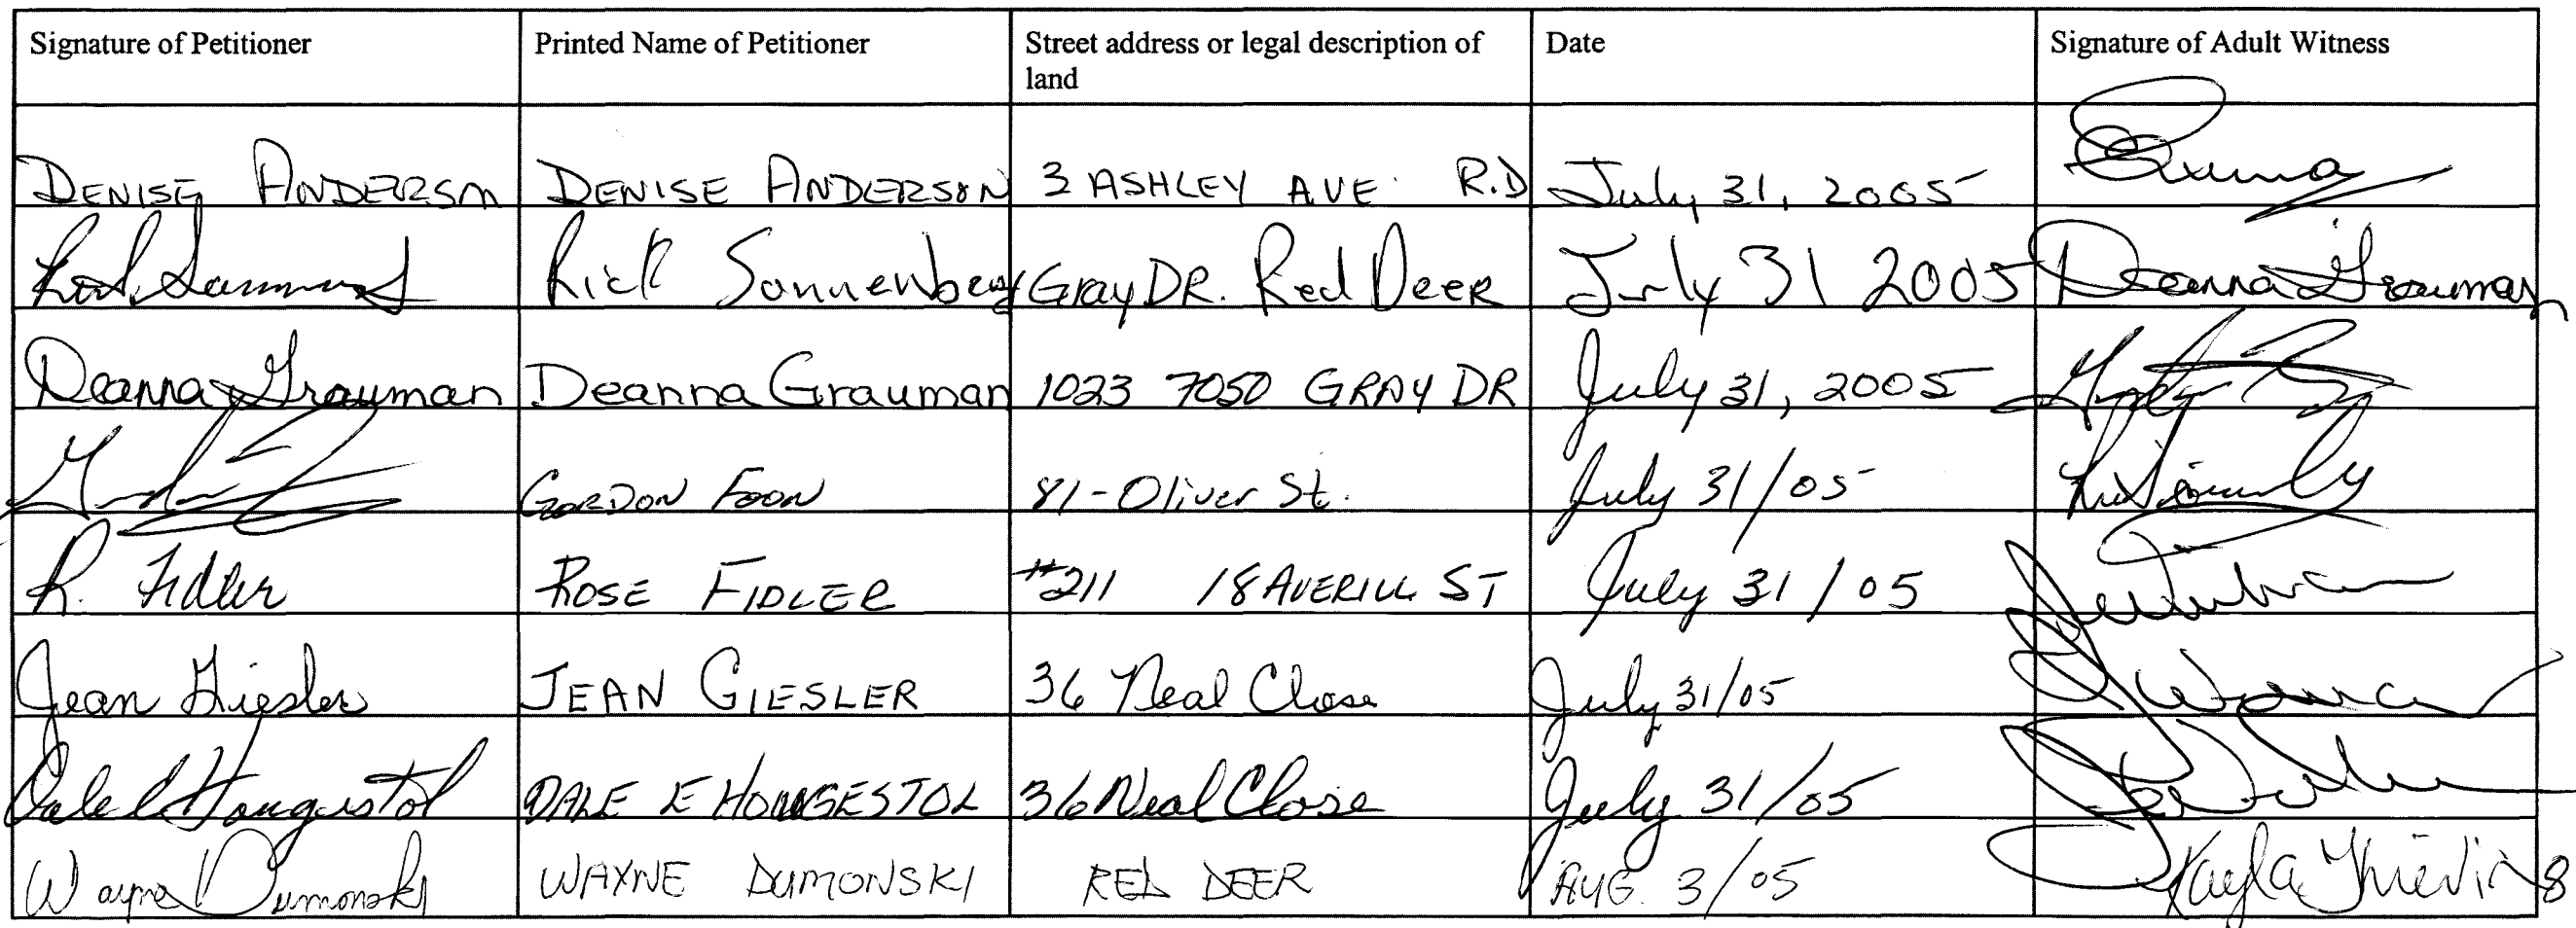 Signature of Petitioner Printed Name of Petitioner Street address or legal description of land Date Signature of Adult Witness
DENISE ANDERSON DENISE ANDERSON 3 ASHLEY AVE. R.D July 31, 2005
Rick Sonnenberg Gray DR. Red Deer July 31 2005 Deanna Grauman
Deanna Grauman Deanna Grauman 1023 7050 GRAY DR July 31, 2005
GORDON FOON 81-Oliver St. July 31/05
R. Fidler ROSE FIDLER #211 18 AVERILL ST July 31/05
Jean Giesler JEAN GIESLER 36 Neal Close July 31/05
Dale E Hougestol DALE E HOUGESTOL 36 Neal Close July 31/05
Wayne Dumonski WAYNE DUMONSKI RED DEER AUG. 3/05 Kayla
8